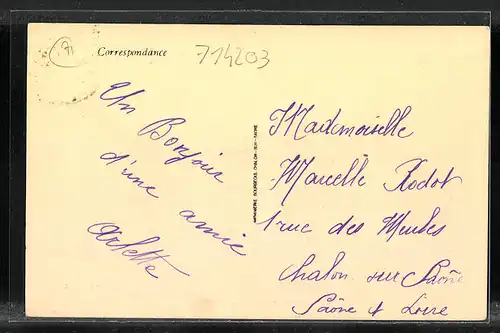 71
Correspondance
714203
Un Bonjour
d'une amie
Arlette
IMPRIMERIE BOURGEOIS, CHALON-SUR-SAÔNE
Mademoiselle
Marcelle Rodot
1 rue des Meules
Chalon sur Saône
Saône & Loire